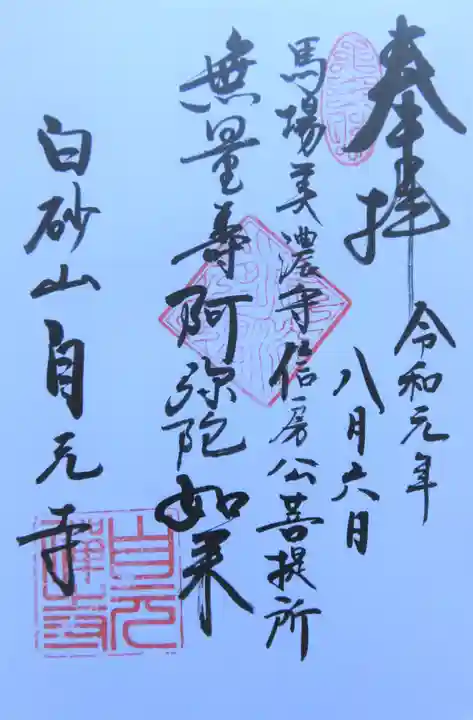 奉拝
令和元年
八月六日
馬場美濃守信房公菩提所
無量寿阿弥陀如来
白砂山自元寺
自元
禅寺